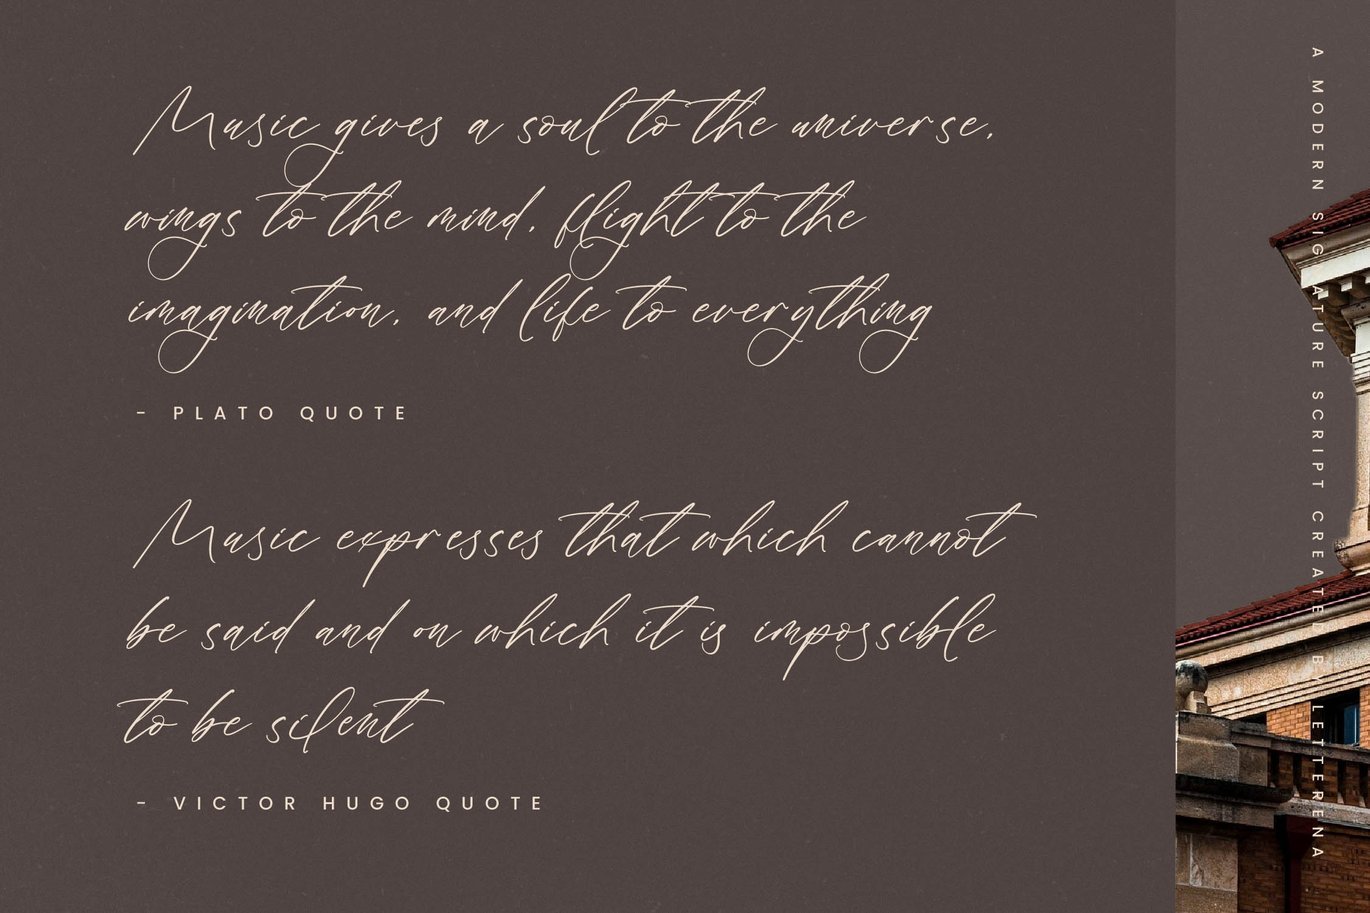 Music gives a soul to the universe,
wings to the mind, flight to the
imagination, and life to everything
- PLATO QUOTE
Music expresses that which cannot
be said and on which it is impossible
to be silent
- VICTOR HUGO QUOTE
A MODERN SIGNATURE SCRIPT CREATED BY LETTERENA